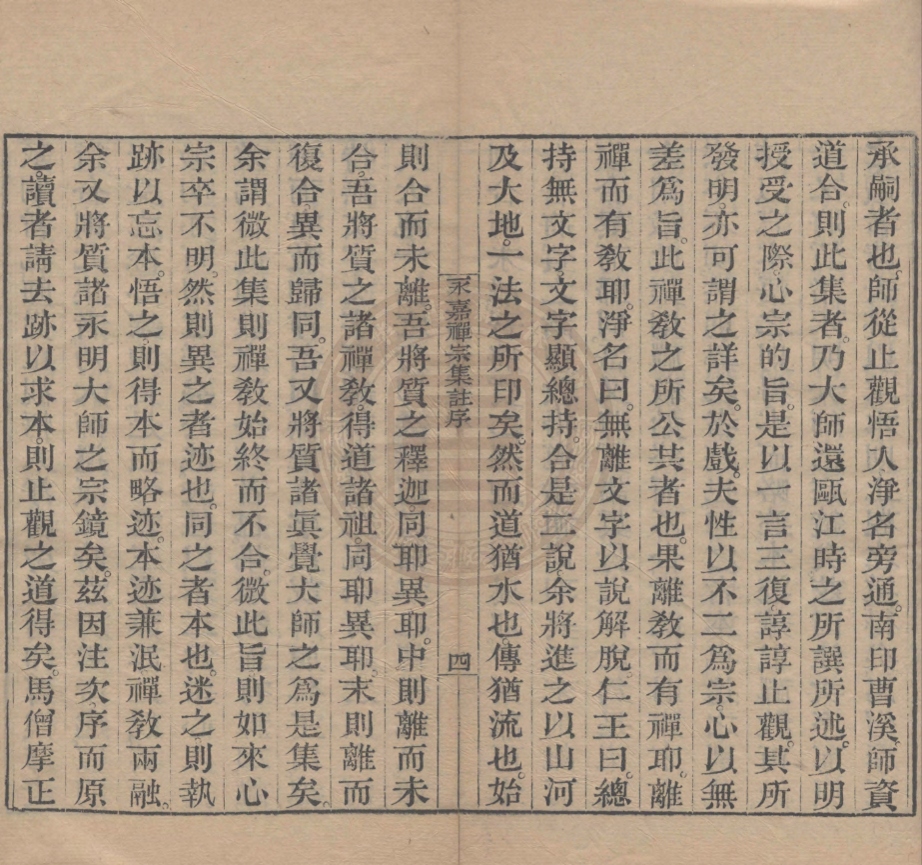 承嗣者也。師從止觀悟入淨名旁通。南印曹溪。師資
道合。則此集者。乃大師還甌江時之所譔所述。以明
授受之際。心宗的旨。是以一言三復。諄諄止觀。其所
發明。亦可謂之詳矣。於戲。夫性以不二爲宗。心以無
差爲旨。此禪敎之所公共者也。果離敎而有禪耶。離
禪而有敎耶。淨名曰。無離文字以說解脫。仁王曰。總
持無文字。文字顯總持。合是二說。余將進之以山河
及大地。一法之所印矣。然而道猶水也。傳猶流也。始
永嘉禪宗集註序
四
則合而未離。吾將質之釋迦。同耶異耶。中則離而未
合。吾將質之諸禪敎。得道諸祖。同耶異耶。末則離而
復合。異而歸同。吾又將質諸眞覺大師之爲是集矣。
余謂微此集則禪敎始終而不合。微此旨則如來心
宗卒不明。然則異之者迹也。同之者本也。迷之則執
跡以忘本。悟之則得本而略迹。本迹兼泯禪敎兩融。
余又將質諸永明大師之宗鏡矣。茲因注次序而原
之。讀者請去跡以求本。則止觀之道得矣。馬僧摩正